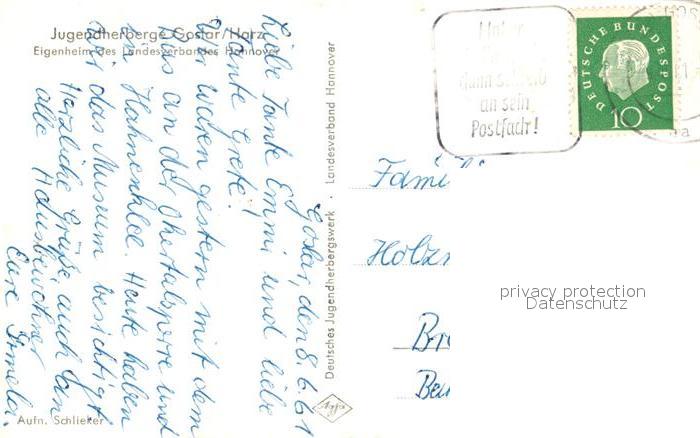 Jugendherberge Goslar/Harz
Eigenheim des Landesverbandes Hannover
Goslar, den 8.6.61
Liebe Tante Emmi und liebe
Tante Grete!
Wir waren gestern mit dem
Bus an der Okertalsperre und
in Hahnenklee. Heute haben
wir das Museum besichtigt.
Herzliche Grüße auch an
alle Hausbewohner
Eure
Aufn. Schlieker
Deutsches Jugendherbergswerk · Landesverband Hannover
Agfa
dann schreib
an sein
Postfach!
DEUTSCHE BUNDESPOST
10
Fami
Holz
Br
privacy protection
Datenschutz